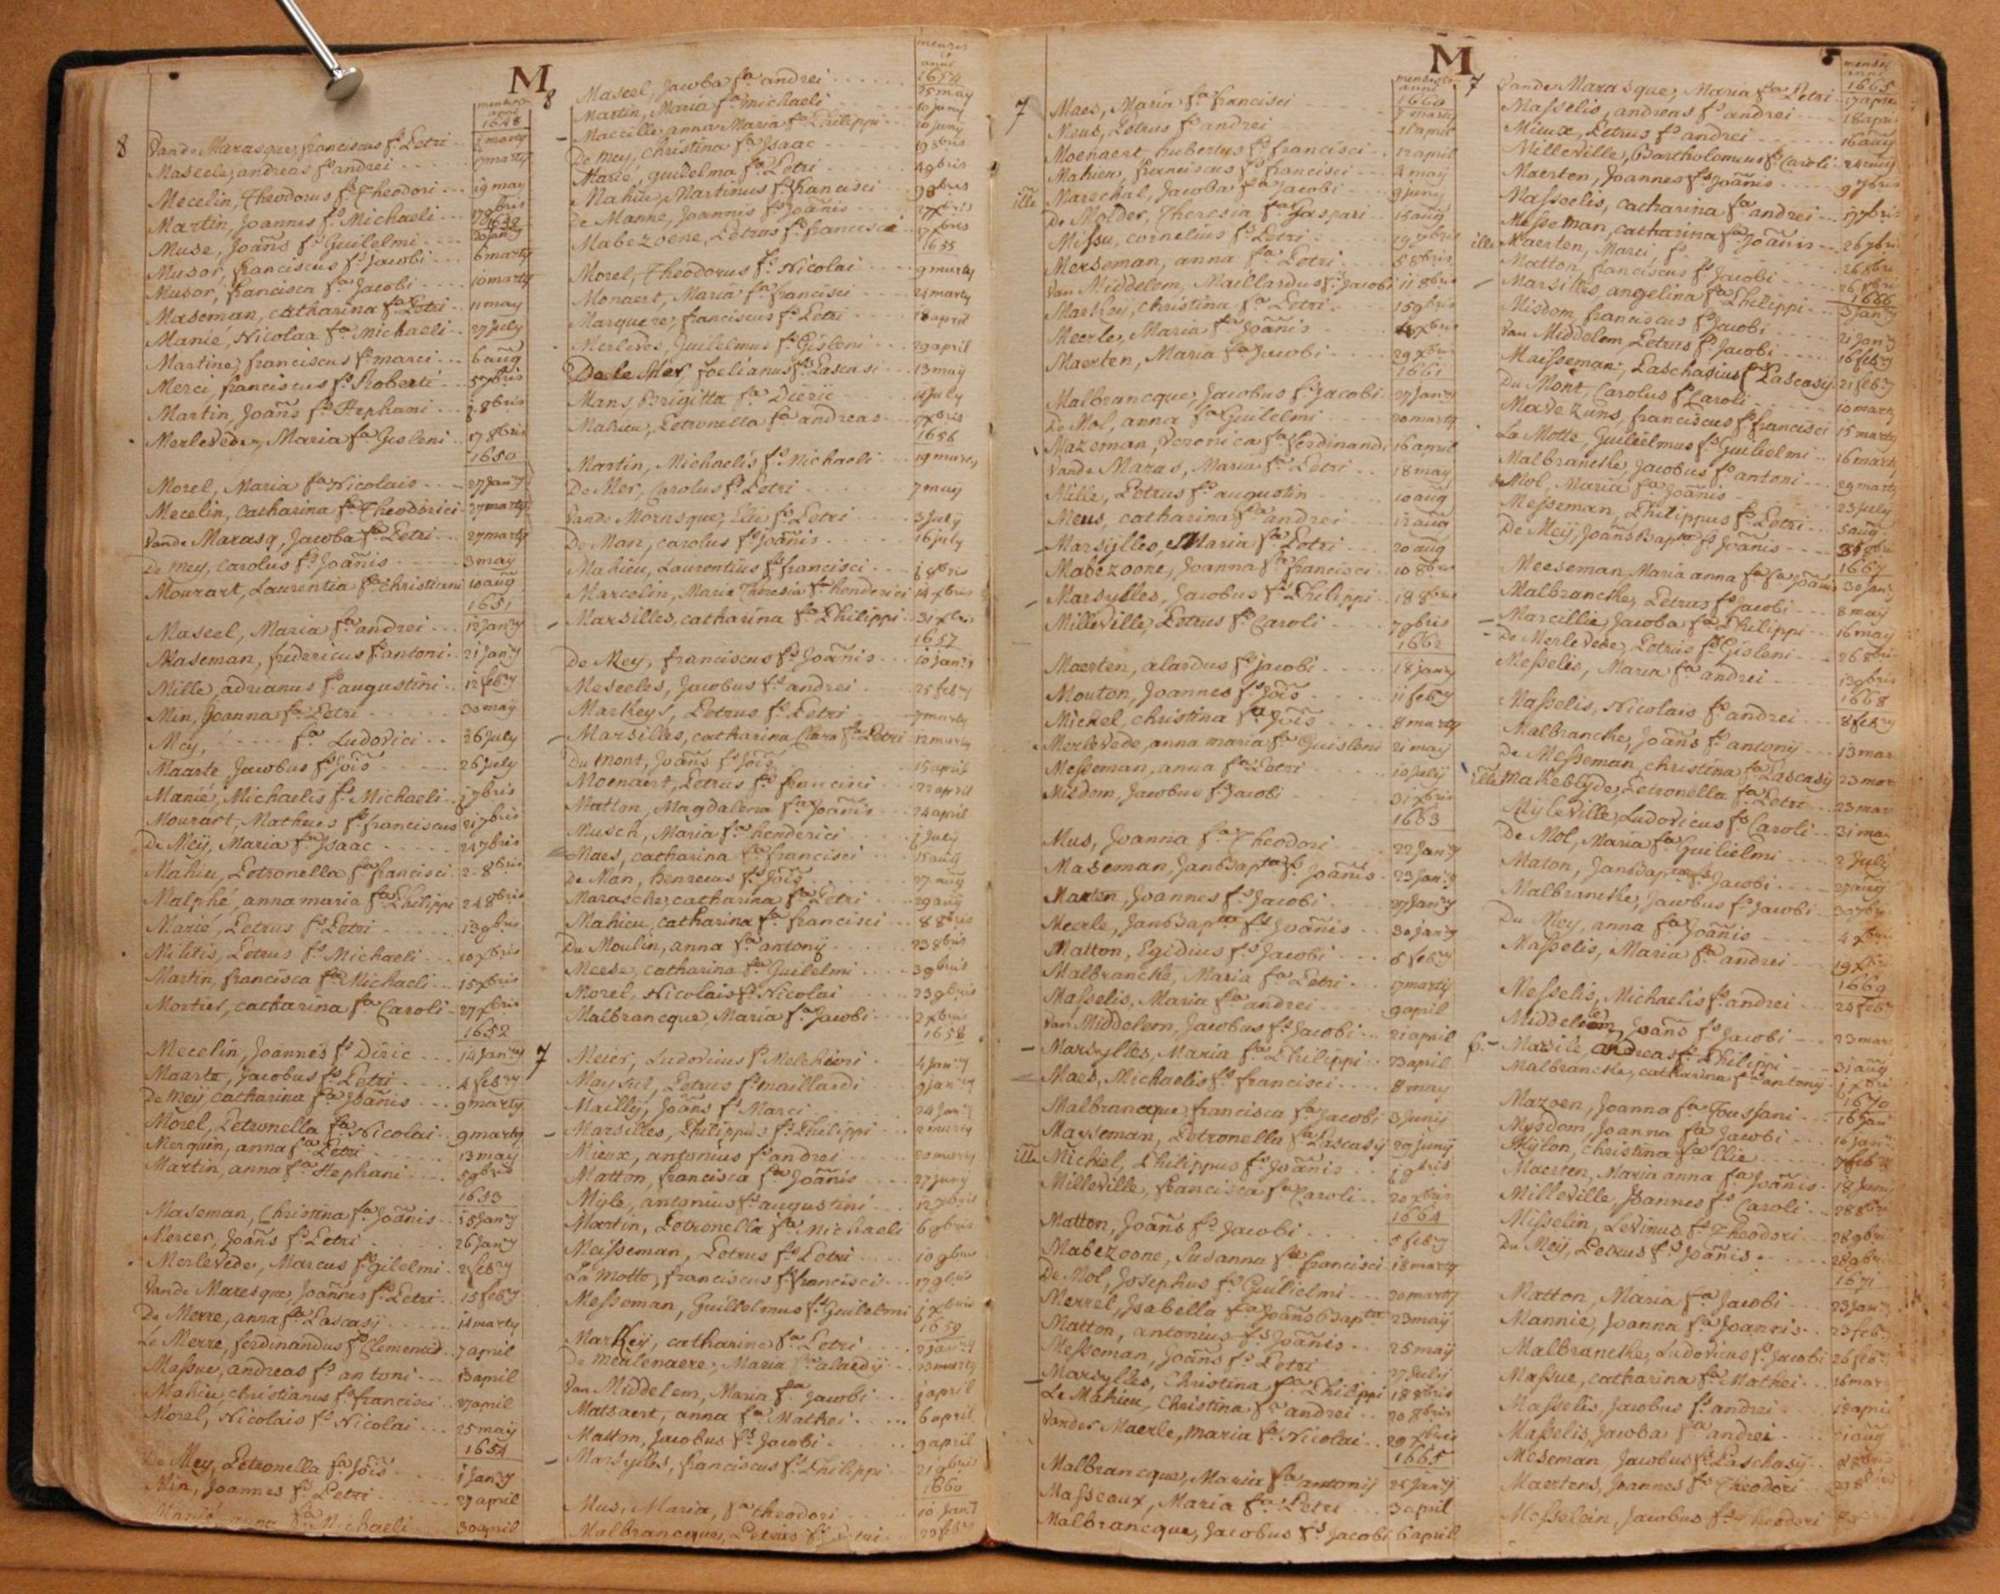 M
mensis
anni
1648
8 Vande Marasque, franciscus fs Petri
Maseele, andreas fs andrei 1 marty
Mecelin, Theodorus fs Theodori 19 may
Martin, Joannes fs Michaeli 17 8bris
1649
Muse, Joañs fs Guilelmi 20 jany
Musor, franciscus fs Jacobi 6 marty
Musor, francisca fa Jacobi 10 marty
Maseman, catharina fa Petri 11 may
Manié, Nicolaa fa Michaeli 27 july
Martine, franciscus fs marci 6 aug
Merci, franciscus fs Roberti
Martin, Joañs fs Stephani 8bris
Merlevede, Maria fa Gisleni 17 8bris
1650
Morel, Maria fa Nicolais 27 Jany
Mecelin, Catharina fa Theodorici 27 marty
Vande Marasq, Jacoba fa Petri 27 marty
De mey, carolus fs Joañis 3 may
Mourart, Laurentia fa christiani 10 aug
1651
Maseel, Maria fa andrei 12 Jany
Maseman, fredericus fs antoni 21 Jany
Mille, adrianus fs augustini 12 feby
Min, Joanna fa Petri 30 may
Mey, fa Ludovici 26 july
Maarte Jacobus fs Joīs 26 july
Manié, Michaelis fs Michaeli 7bris
Mourart, Matheus fs franciscus 21 7bris
De Meij, Maria fa Isaac 24 7bris
Mahieu, Petronella fa francisci 2 8bris
Malphé, anna maria fa Philippi 24 8bris
Marié, Petrus fs Petri 13 9bris
Militis, Petrus fs Michaeli 10 xbris
Martin, francisca fa Michaeli 15 xbris
Mortier, catharina fa Caroli 27 xbris
1652
Mecelin, Joannes fs Diric 14 Jany
Maarte, Jacobus fs Petri 4 feby
De Meij catharina fa Joañis 9 marty
Morel, Petronella fa Nicolai 9 marty
Merquin, anna fa Petri 13 may
Martin, anna fa Stephani 5 9bris
1653
Maseman, Christina fa Joañis 15 Jany
Mercer, Joañs fs Petri 26 Jany
Merlevede, Marcus fs Gilelmi 2 feby
Vande Maresque, Joannes fs Petri 15 feby
De Merre, anna fa Pascasj 14 marty
Le Merre, ferdinandus fs Clementis 7 april
Massue, andreas fs antoni 13 april
Mahieu, christianus fs francisci 27 april
Morel, Nicolais fs Nicolai 25 maij
1654
De Mey, Petronella fa Joīs 1 Jany
Min, Joannes fs Petri 27 april
Manié, anna fa Michaeli 30 april
mensis
anni
1654
8 Maseel, Jacoba fa andrei 15 may
Martin, Maria fa michaeli 10 juny
Maccille, anna Maria fa Philippi 10 juny
De Mey, christina fa Isaac
Marie, guilelma fa Petri
Mahieu, Martinus fs francisci
De Manne, Joannis fs Joañis
Mabezoone, Petrus fs francisci
1655
Morel, Theodorus fs Nicolai 9 marty
Monaert, Maria fa francisci 24 marty
Marquere, franciscus fs Petri april
Merleves, Guilelmus fs Gisleni 29 april
De le Mer, foelianus fs Pascasi 13 may
Mans, Brigitta fa Dieric july
Mahieu, Petronella fa andreas
1656
Martin, Michaelis fs Michaeli 19 marty
De Mer, Carolus fs Petri 7 may
Vande Mornsque, Elie fs Petri 3 july
De Man, carolus fs Joañis 16 july
Mahieu, Laurentius fs francisci 8bris
Marcelin, Maria Theresia fa henderici 14 xbris
Marsilles, catharina fa Philippi 31 xbris
1657
De Mey, franciscus fs Joañis 10 Jany
Meseeles, Jacobus fs andrei 25 feby
Markeys, Petrus fs Petri 7 marty
Marsilles, catharina Clara fa Petri 12 marty
Du mont, Joañs fs Joīs 15 april
Moenaert, Petrus fs francisci 22 april
Matton, Magdalena fa Joañis 24 april
Musch, Maria fa henderici july
Maes, catharina fa francisci 15 aug
De Man, henricus fs Joīs 27 aug
Marasche, catharina fa Petri 29 aug
Mahieu, catharina fa francisci 8 8bris
Du Moulin, anna fa antony 23 8bris
Meese, catharina fa Guilelmi 3 9bris
Morel, Nicolais fs Nicolai 23 9bris
Malbrancque, Maria fa Jacobi 2 xbris
1658
7 Meier, Ludovicus fs Melchiori 4 Jany
Mayeur, Petrus fs maillardi 9 jany
Mailly, Joañs fs Marci 24 Jany
Marsilles, Philippus fs Philippi 2 marty
Mieux, antonius fs andrei 20 marty
Matton, francisca fa Joañis 27 juny
Mijle, antonius fs augustini 12 7bris
Martin, Petronella fa Michaeli 6 9bris
Meisseman, Petrus fs Petri 10 9bris
La Motte, franciscus fs francisci 17 9bris
Messeman, Guillelmus fs Guilelmi xbris
1659
Markeij, catharina fa Petri 2 jany
De Meulenaere, Maria fa alardij 23 marty
Van Middelem, Maria fa Jacobi 1 april
Matsaert, anna fa Mathei 6 april
Matton, Jacobus fs Jacobi 9 april
Marsylles, franciscus fs Philippi 21 9bris
1660
Mus, Maria, fa theodori 10 Jany
Malbrancque, Petrus fs Petri 20 feby
M
mensis
anni
1660
7 Maes, Maria fa francisci 7 marty
Meus, Petrus fs andrei april
Moenaert, hubertus fs francisci 12 april
Mahieu, franciscus fs francisci 4 may
ille Marechal, Jacoba fa Jacobi 9 juny
De Molder, Theresia fa Gaspari 15 aug
Missu, cornelius fs Petri 19 7bris
Merseman, anna fa Petri 5 8bris
Van Middelem, Maillardus fs Jacobi 11 8bris
Markey, Christina fa Petri 15 9bris
Meerle, Maria fa Joañis xbris
Maerten, Maria fa Jacobi 29 xbris
1661
Malbrancque, Jacobus fs Jacobi 27 Jany
De Mol, anna fa Guilelmi 20 marty
Mazeman, Veronica fa ferdinandi 16 april
Vande Maras, Maria fa Petri 18 may
Mille, Petrus fs augustin 10 aug
Meus, catharina fa andrei 12 aug
Marsylles, Maria fa Petri 20 aug
Mabezoone, Joanna fa francisci 10 8bris
Marsylles, Jacobus fs Philippi 18 8bris
Milleville, Petrus fs Caroli 7 9bris
1662
Maerten, alardus fs jacobi 18 jany
Mouton, Joannes fs Joīs 11 feby
Michel, christina fa Joīs 8 marty
Merlevede, anna maria fa Guisleni 21 may
Messeman, anna fa Petri 10 julij
Misdom, Jacobus fs Jacobi 31 xbris
1663
Mus, Joanna fa Theodori 22 Jany
Maseman, Jan Bapta fs Joañis 23 Jany
Marten, Joannes fs Jacobi 27 Jany
Meerle, Jan Bapta fs Joañis 30 jany
Matton, Egidius fs Jacobi 6 feby
Malbrancke, Maria fa Petri 17 marty
Masselis, Maria fa andrei 9 april
Van Middelem, Jacobus fs Jacobi 21 april
Marsylles, Maria fa Philippi 23 april
Maes, Michaelis fs francisci 8 may
Malbrancque, francisca fa Jacobi 3 Junij
Masseman, Petronella fa Pascasij 29 junij
ille Michiel, Philippus fs Joañis 9bris
Milleville, francisca fa Caroli 20 xbris
1664
Matton, Joañs fs Jacobi 5 feby
Mabezoone, Susanna fa francisci 18 marty
De Mol, Josephus fs Guilielmi 20 marty
Merrel, Isabella fa Joañs Bapta 23 maij
Matton, antonius fs Joañis 25 maij
Messeman, Joañs fs Petri 27 Julij
Marsylles, Christina fa Philippi 18 8bris
Le Mahieu, Christina fa andrei 20 8bris
Vander Maerle, Maria fa Nicolai 29 xbris
1665
Malbrancque, Maria fa antonij 25 Janij
Masseaux, Maria fa Petri 3 april
Malbrancque, Jacobus fs Jacobi 6 april
mensis
anni
1665
7 Vande Marasque, Maria fa Petri 17 april
Masselis, andreas fs andrei 18 april
Mieux, Petrus fs andrei 16 aug
Milleville, Bartholomeus fs Caroli 24 aug
Maerten, Joannes fs Joañis 9 7bris
Masselis, catharina fa andrei 17 7bris
Messeman, catharina fa Joañis 26 7bris
ille Maerten, Marci fs
Matton, franciscus fs Jacobi
Marsilles, angelina fa Philippi
1666
Misdom, franciscus fs Jacobi 3 Jany
Van Middelem, Petrus fs Jacobi 21 Jany
Maisseman, Paschasius fs Pascasij 21 feby
Du Mont, Carolus fs Caroli 10 marty
Mavezuns, franciscus fs francisci 15 marty
La Motte, Guilielmus fs Guilielmi 16 marty
Malbrancke, Jacobus fs antoni 29 marty
de Mol, Maria fa Joañis 25 july
Messeman, Philippus fs Petri 5 aug
De Meij, Joañs Bapta fs Joañis
1667
Meeseman, Maria anna fa Joañis 30 Jany
Malbrancke, Petrus fs Jacobi 8 may
Marcillie, Jacoba fa Philippi 16 may
De Merlevede, Petrus fs Gisleni 26 8bris
Messelis, Maria fa andrei 13 9bris
1668
Masselis, Nicolais fs andrei 8 feby
Malbranche, Joañs fs antonij 13 mar
De Messeman, christina fa Pascasij 23 mar
ille Makeblyde, Petronella fa Petri 23 mar
Mijleville, Ludovicus fs Caroli 31 may
De Mol, Maria fa Guilielmi 2 July
Maton, Jan Bapta fs Jacobi 27 aug
Malbrancke, Jacobus fs Jacobi 30 7bris
Du Mey, anna fa Joañis 4 xbris
Masselis, Maria fa andrei 19 xbris
1669
Messelis, Michaelis fs andrei 23 feby
Middelem, Joañs fs Jacobi 23 mar
6 Masile, andreas fs Philippi 31 aug
Malbrancke, catharina fa antony xbri
1670
Mazoen, Joanna fa Toussani 16 Jan
Mijsdom, Joanna fa Jacobi 16 Jan
Mijlon, Christina fa Elie 7 feb
Maerten, Maria anna fa Joañis 18 Juny
Milleville, Joannes fs Caroli 28 8bris
Misselin, Levinus fs Theodori 28 9bris
Du Meij, Petrus fs Joañis 28 9bris
1671
Matton, Maria fa Jacobi 23 Jany
Mannie, Joanna fa Joannis 23 feb
Malbrancke, Ludovicus fs Jacobi 26 feb
Massue, catharina fa Mathei 16 mar
Masselis, Jacobus fs andrei 18 april
Masselis, Jacoba fa andrei aug
Meseman, Jacobus fs Paschasij
Maertens, Joannes fs Theodori
Messelein, Jacobus fs Theodori